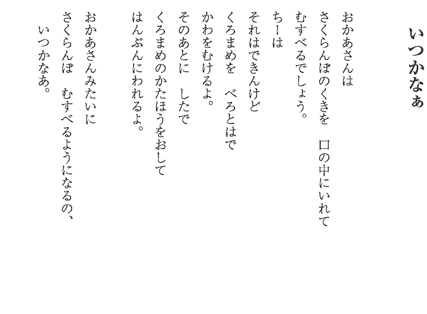 いつかなぁ
おかあさんは
さくらんぼのくきを　口の中にいれて
むすべるでしょう。
ちーは
それはできんけど
くろまめを　べろとはで
かわをむけるよ。
そのあとに　したで
くろまめのかたほうをおして
はんぶんにわれるよ。
おかあさんみたいに
さくらんぼ　むすべるようになるの、
いつかなあ。